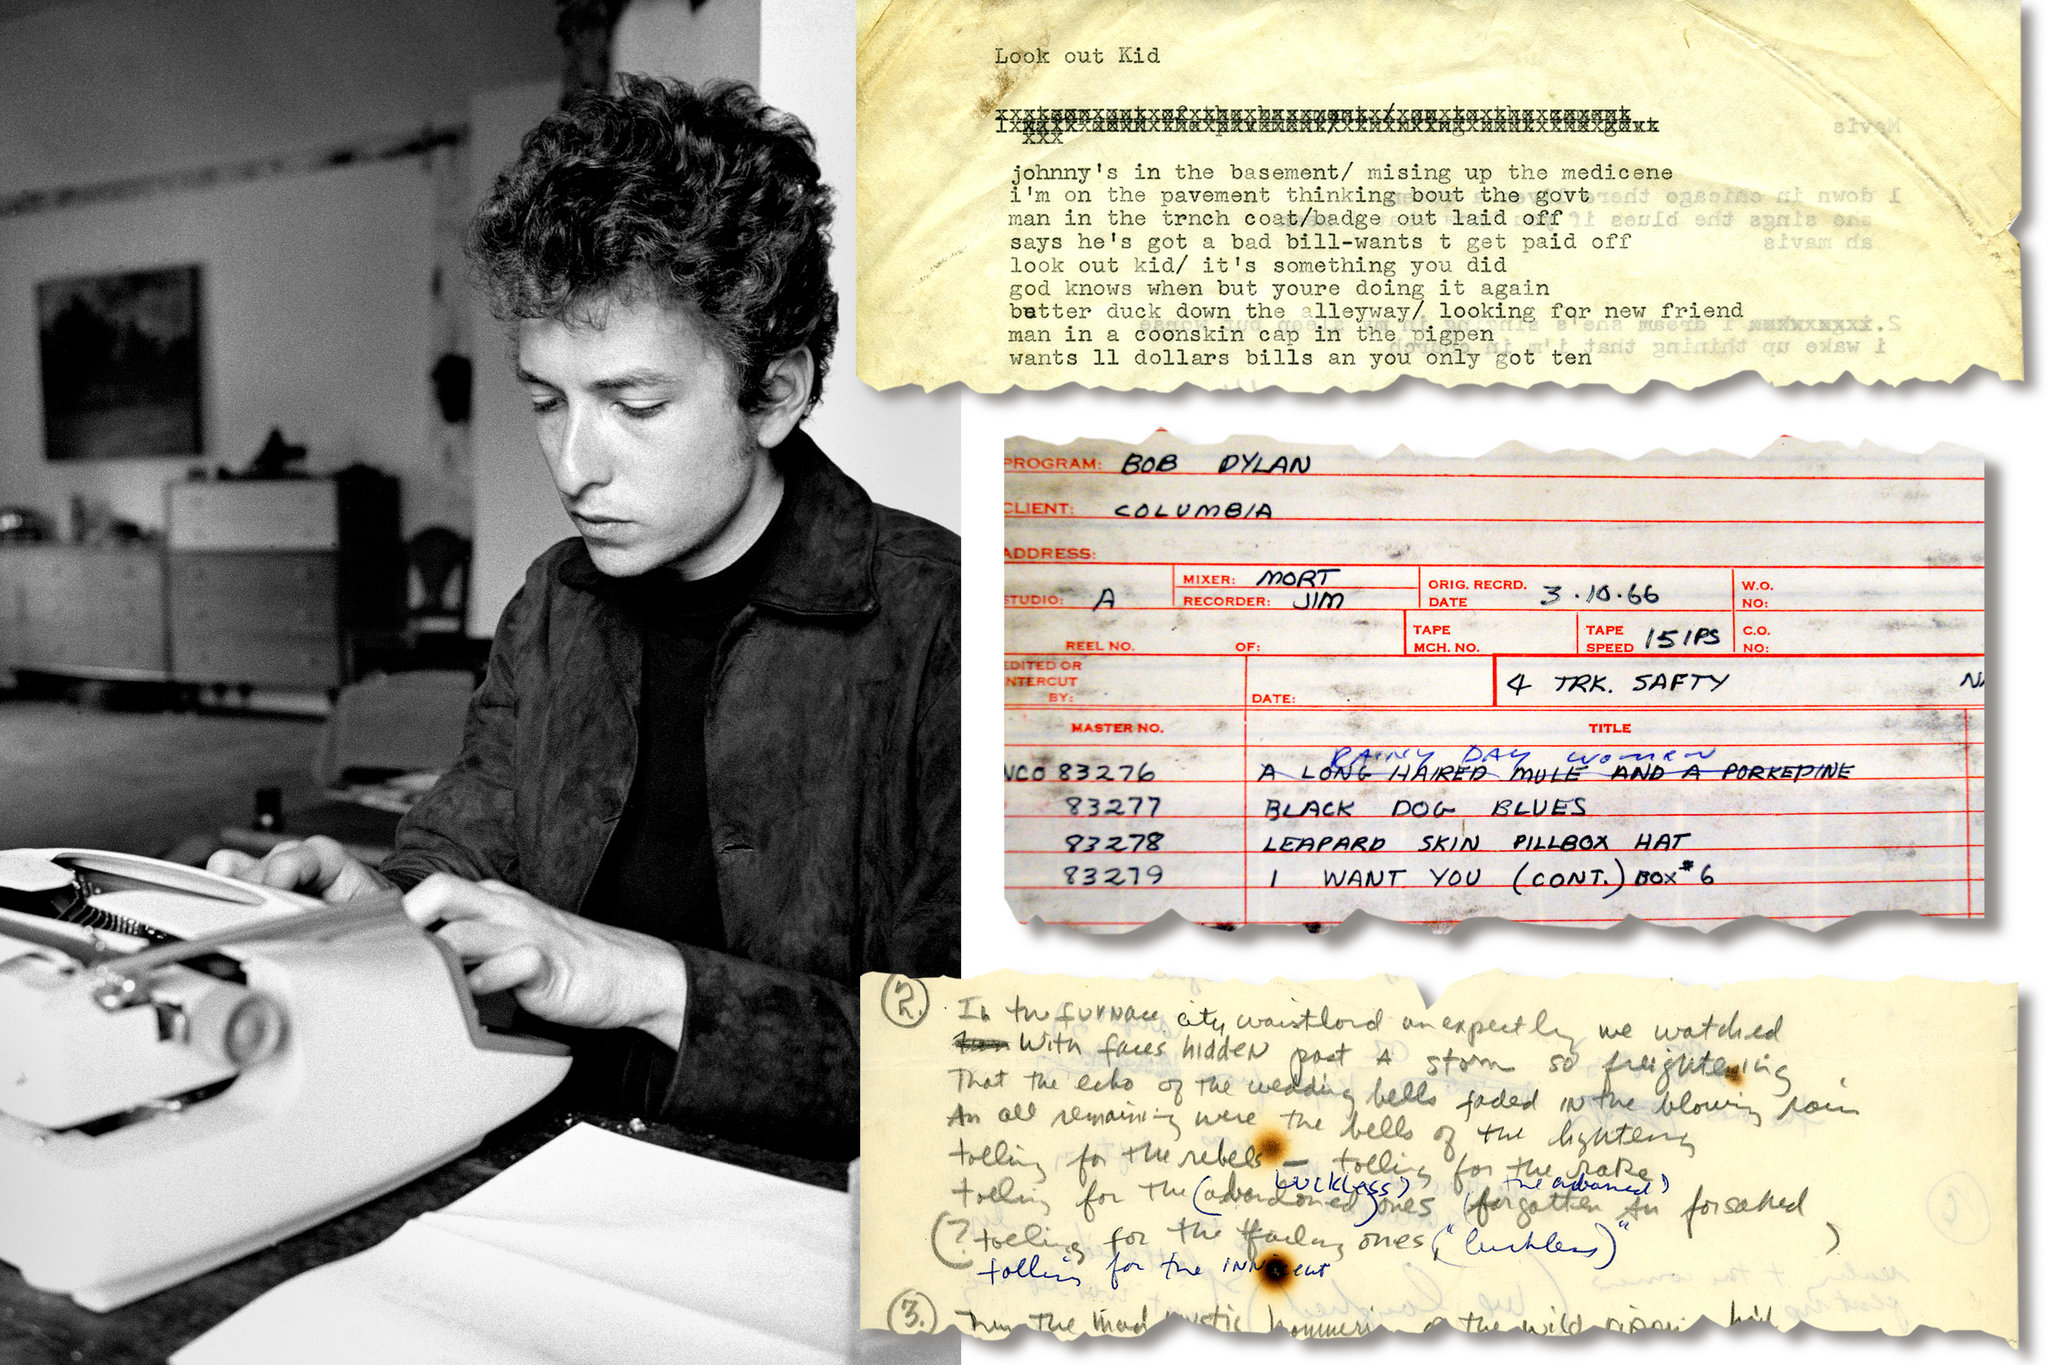 Look out Kid
johnny's in the basement/ mising up the medicene
i'm on the pavement thinking bout the govt
man in the trnch coat/badge out laid off
says he's got a bad bill-wants t get paid off
look out kid/ it's something you did
god knows when but youre doing it again
better duck down the alleyway/ looking for new friend
man in a coonskin cap in the pigpen
wants 11 dollars bills an you only got ten
PROGRAM: BOB DYLAN
CLIENT: COLUMBIA
ADDRESS:
STUDIO: A MIXER: MORT RECORDER: JIM ORIG. RECRD. DATE 3.10.66 W.O. NO:
REEL NO. OF: TAPE MCH. NO. TAPE SPEED 15 IPS C.O. NO:
EDITED OR INTERCUT BY: DATE: 4 TRK. SAFTY
MASTER NO. TITLE
RAINY DAY WOMEN
NCO 83276 A LONG HAIRED MULE AND A PORKEPINE
83277 BLACK DOG BLUES
83278 LEAPARD SKIN PILLBOX HAT
83279 I WANT YOU (CONT.) BOX #6
2. In the furnace city, unexpectly we watched
With faces hidden past A storm so freightening
That the echo of the wedding bells faded IN the blowing rain
An all remaining were the bells of the lightening
tolling for the rebels – tolling for the rake
luckless)
tolling for the (abandoned) ones (forgotten an forsaked
(? tolling for the ones ("luckless)" )
tolling for the INNocent
3. the mad mystic hammering of the wild hail